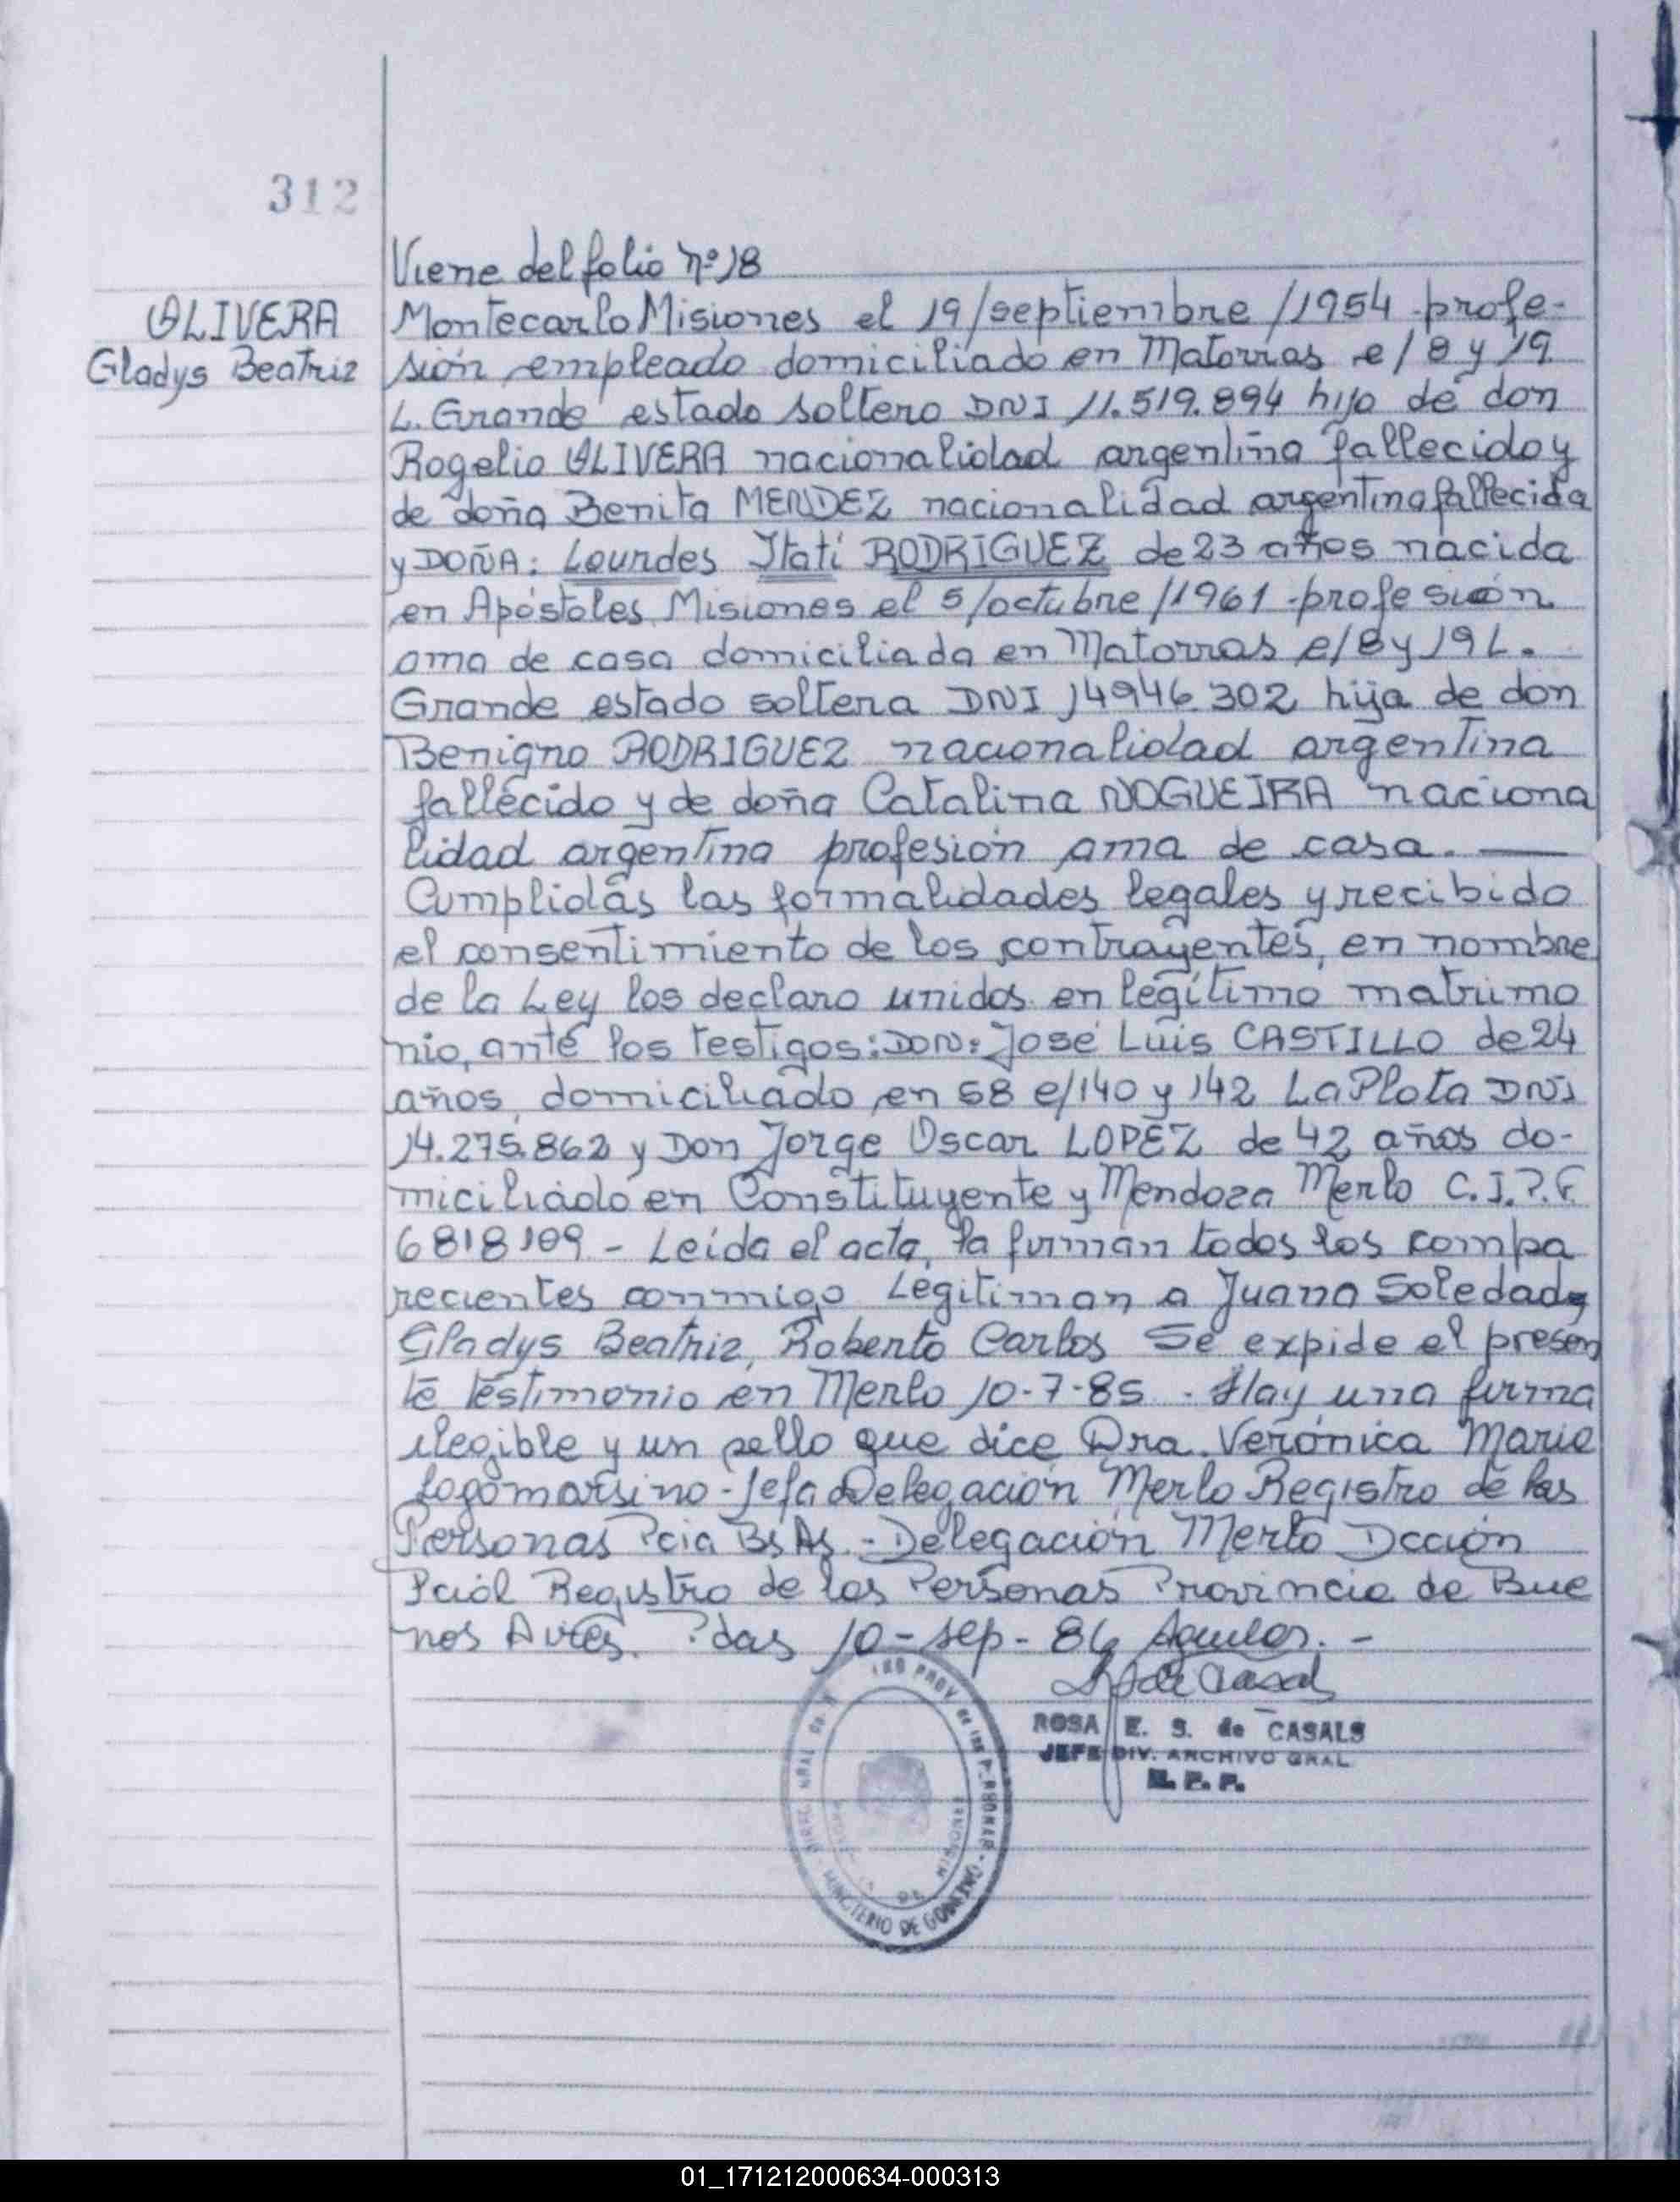 312
Viene del folio nº 18
OLIVERA
Gladys Beatriz
Montecarlo Misiones el 19/septiembre/1954 profe-
sión empleado domiciliado en Matorras e/8 y 19
L. Grande estado soltero DNI 11.519.894 hijo de don
Rogelio OLIVERA nacionalidad argentina fallecido y
de doña Benita MENDEZ nacionalidad argentina fallecida
y DOÑA: Lourdes Itatí RODRIGUEZ de 23 años nacida
en Apóstoles Misiones el 5/octubre/1961 profesión
ama de casa domiciliada en Matorras e/8 y 19 L.
Grande estado soltera DNI 14946.302 hija de don
Benigno RODRIGUEZ nacionalidad argentina
fallecido y de doña Catalina NOGUEIRA naciona
lidad argentina profesión ama de casa. —
Cumplidas las formalidades legales y recibido
el consentimiento de los contrayentes, en nombre
de la Ley los declaro unidos en legítimo matrimo
nio, ante los testigos: DON: José Luis CASTILLO de 24
años, domiciliado en 68 e/140 y 142 La Plata DNI
14.275.862 y Don Jorge Oscar LOPEZ de 42 años do-
miciliado en Constituyente y Mendoza Merlo C.I.P.F.
6818109 - Leída el acta, la firman todos los compa
recientes conmigo Legitiman a Juana Soledad y
Gladys Beatriz, Roberto Carlos Se expide el presen
te testimonio en Merlo 10-7-85 - Hay una firma
ilegible y un sello que dice Dra. Verónica Marie
Logomarsino - Jefa Delegación Merlo Registro de las
Personas Pcia Bs As. - Delegación Merlo Dcción
Pciál Registro de las Personas Provincia de Bue
nos Aires. Pdas 10 - sep - 86
ROSA E. S. de CASALS
JEFE DIV. ARCHIVO GRAL
MINISTERIO DE GOBIERNO
01_171212000634-000313